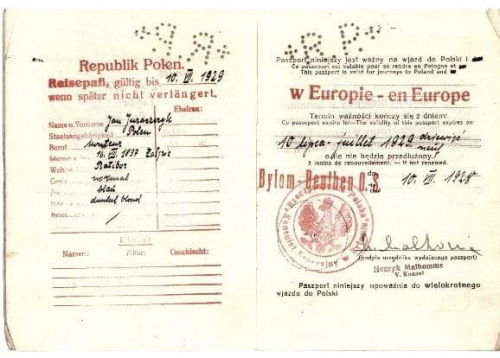 "R.P."
Republik Polen.
Reisepaß, gültig bis 10. VII. 1929
wenn später nicht verlängert.
Ehefrau:
Name u. Vorname
Jan
Staatsangehörigkeit Polen
Beruf
1897
Ratibor
normal
blau
dunkel blond
Namen: Alter: Geschlecht:
"R.P."
Paszport niniejszy jest ważny na wjazd do Polski i
Ce passeport est valable pour se rendre en Pologne et
This passport is valid for journeys to Poland and
w Europie - en Europe
Termin ważności kończy się z dniem:
Ce passeport expire le:—The validity of this passport expires on:
10 lipca - juillet 1929 dziewięć
neuf
o ile nie będzie przedłużony.
à moins de renouvellement. — If not renewed.
Bytom-Beuthen O.S. 10. VII. 1928
(podpis urzędnika wydającego paszport)
Henryk Malhomme
V. Konsul
Paszport niniejszy upoważnia do wielokrotnego
wjazdu do Polski